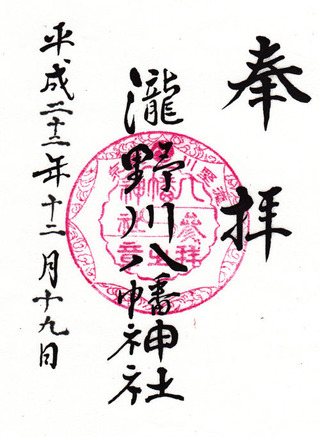 奉拝
瀧野川八幡神社
平成二十二年十二月十九日